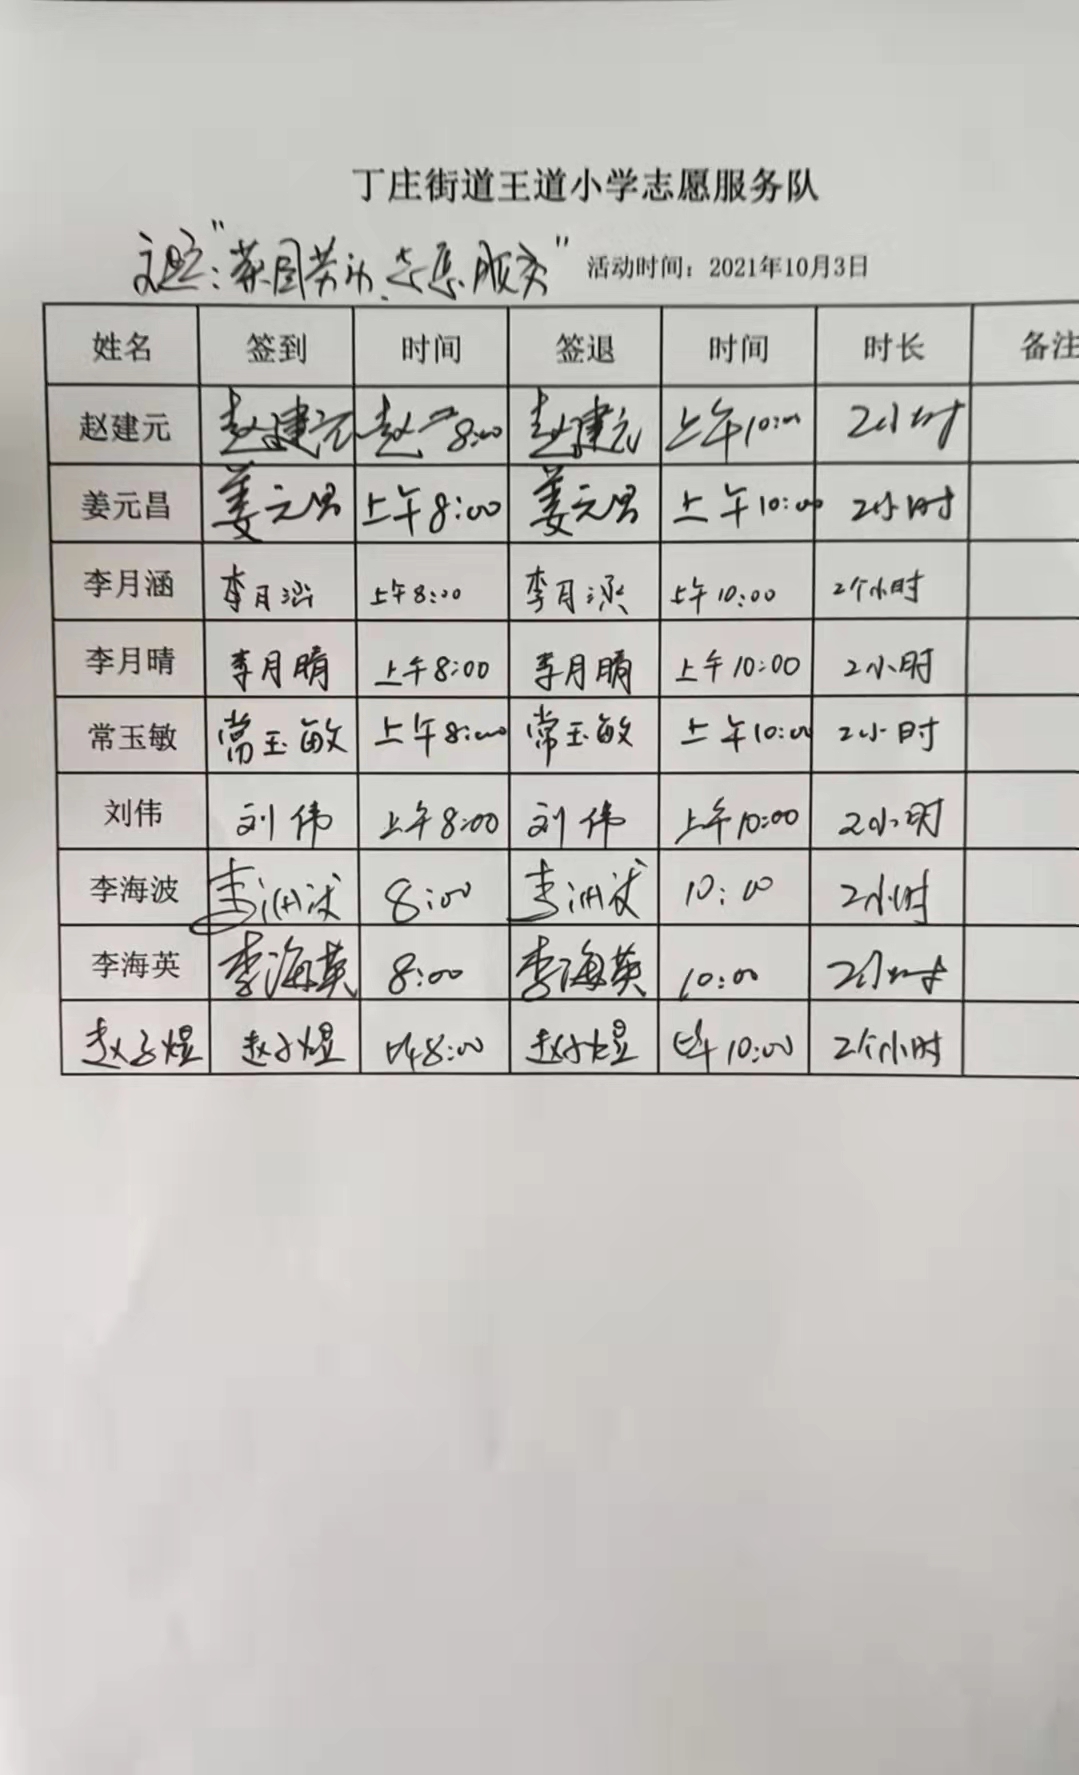 丁庄街道王道小学志愿服务队
主题："菜园劳动、志愿服务" 活动时间：2021年10月3日
姓名 签到 时间 签退 时间 时长 备注
赵建元 赵建元 8:00 赵建元 上午10:00 2小时
姜元昌 姜元昌 上午8:00 姜元昌 上午10:00 2小时
李月涵 李月涵 上午8:00 李月涵 上午10:00 2个小时
李月晴 李月晴 上午8:00 李月晴 上午10:00 2小时
常玉敏 常玉敏 上午8:00 常玉敏 上午10:00 2小时
刘伟 刘伟 上午8:00 刘伟 上午10:00 2小时
李海波 李海波 8:00 李海波 10:00 2小时
李海英 李海英 8:00 李海英 10:00 2小时
赵子煜 赵子煜 上午8:00 赵子煜 上午10:00 2个小时